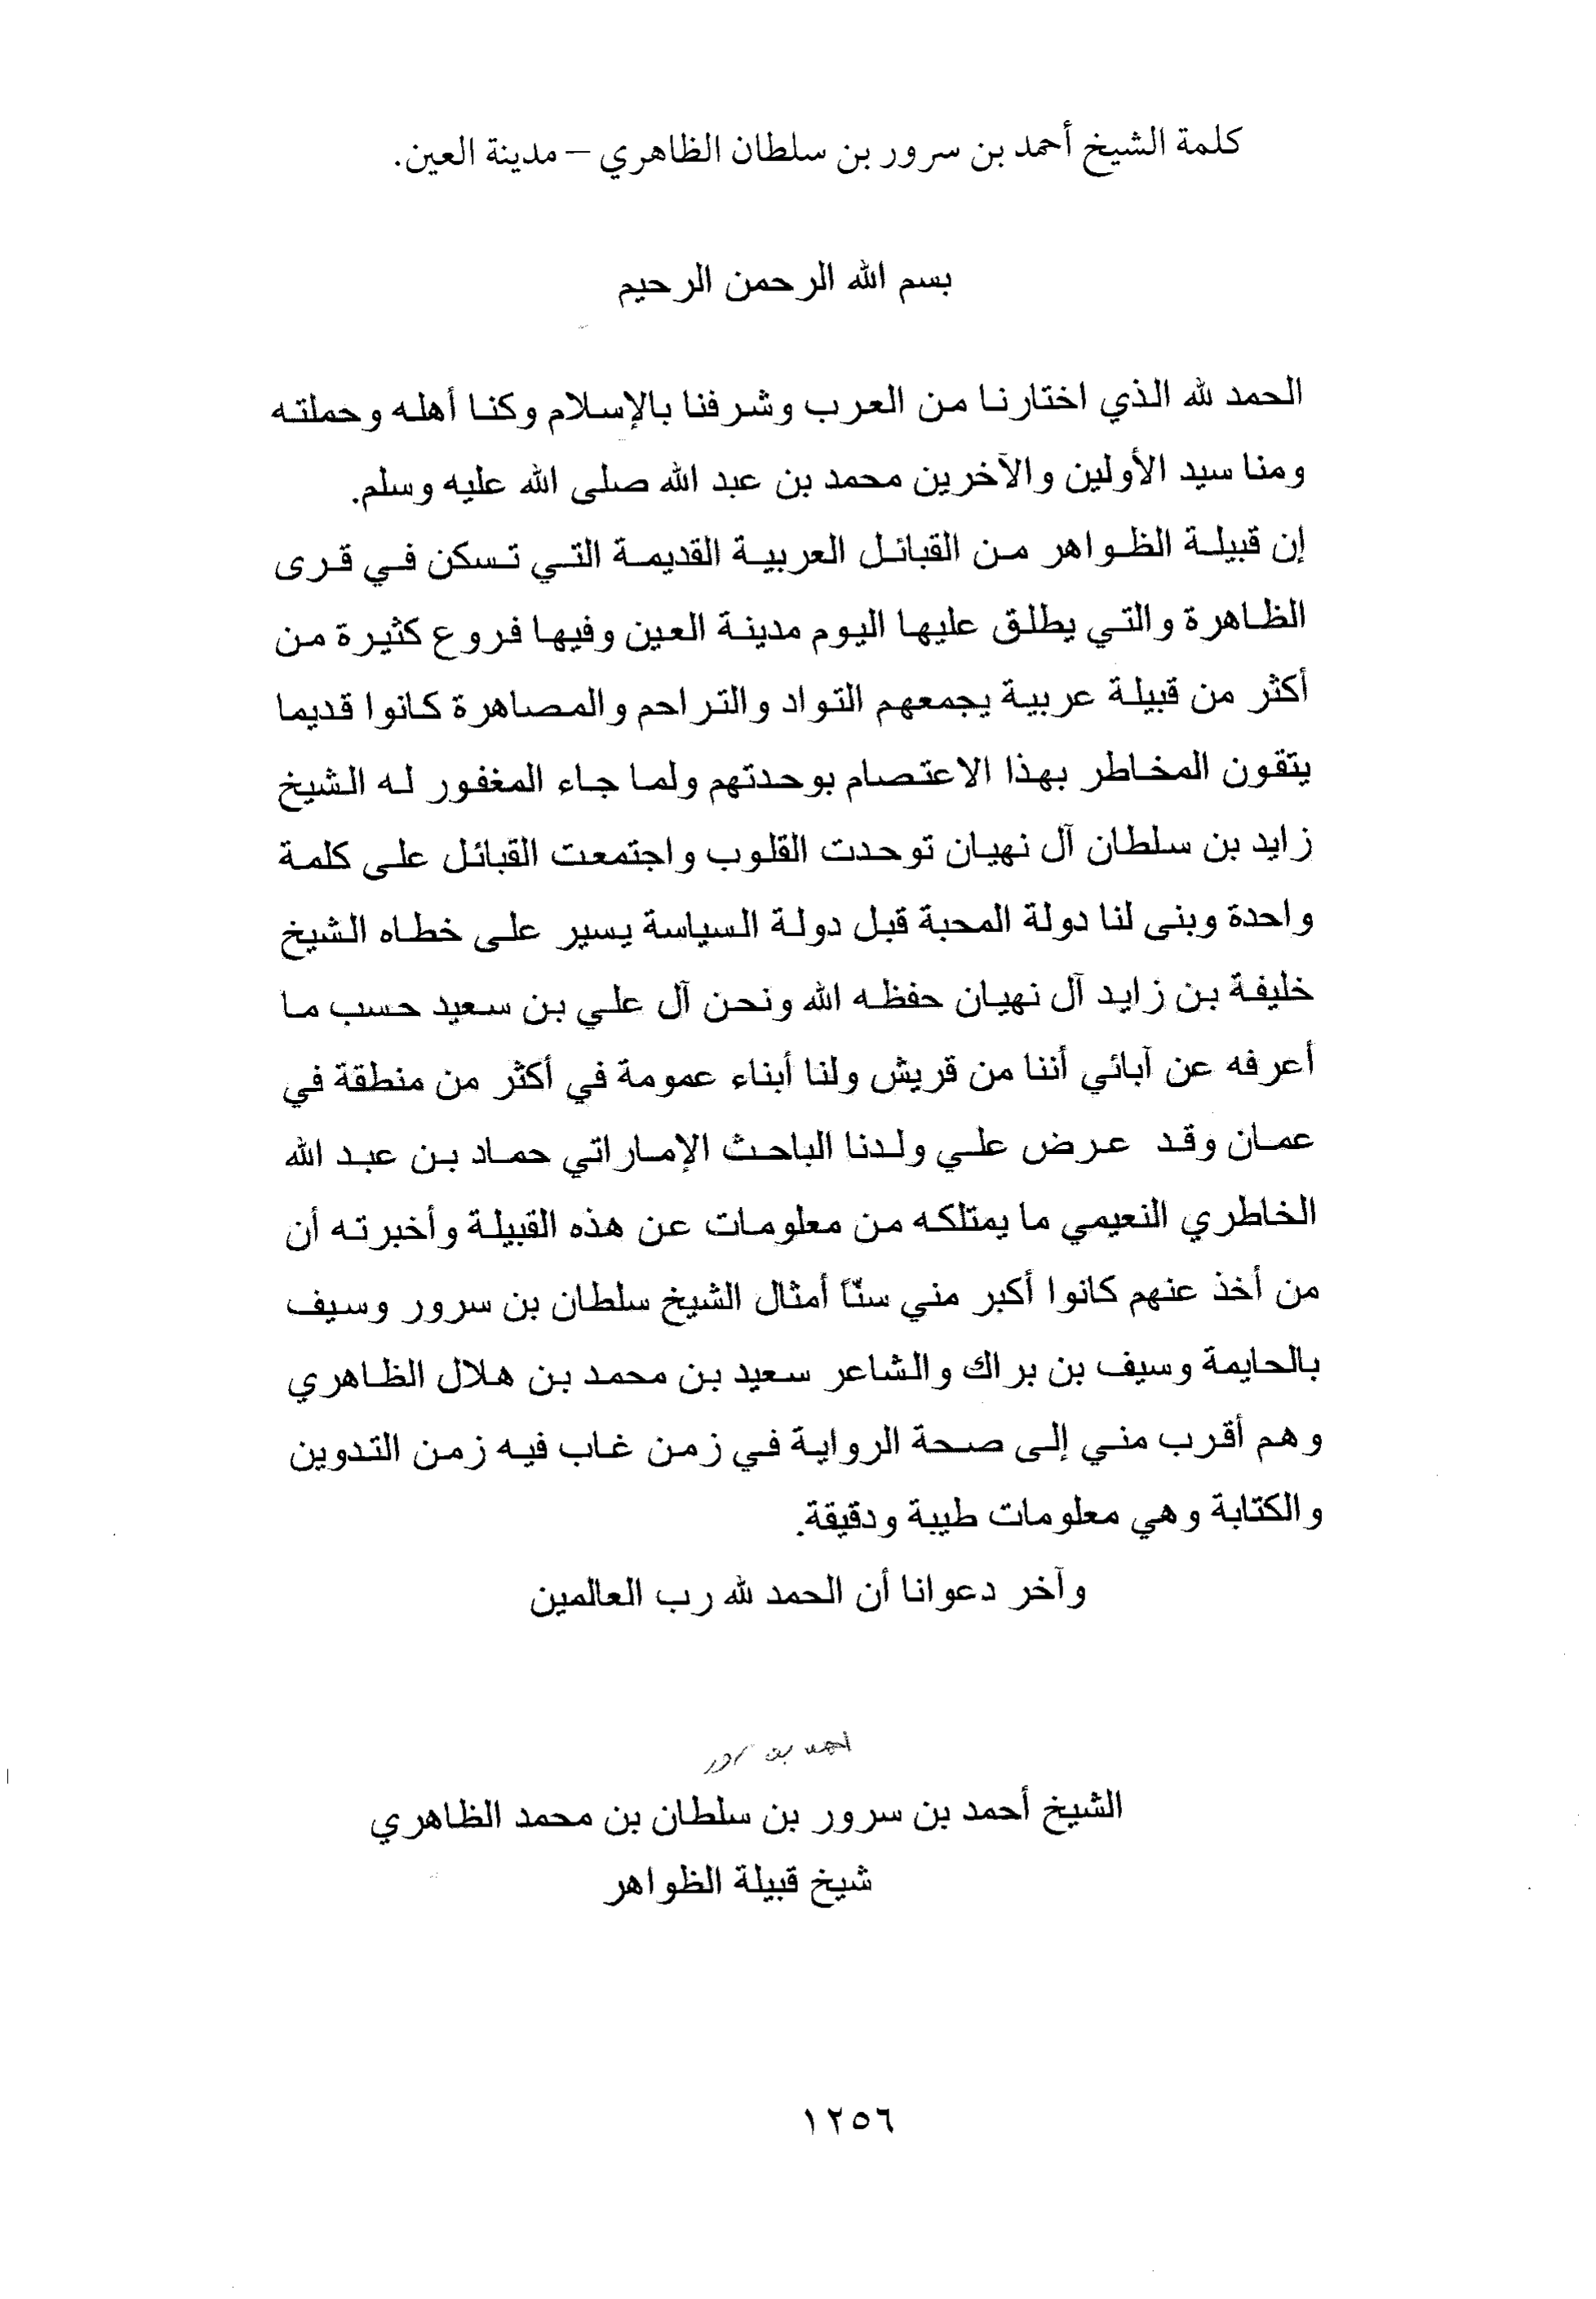 كلمة الشيخ أحمد بن سرور بن سلطان الظاهري – مدينة العين.
بسم الله الرحمن الرحيم
الحمد لله الذي اختارنا من العرب وشرفنا بالإسلام وكنا أهله وحملته
ومنا سيد الأولين والآخرين محمد بن عبد الله صلى الله عليه وسلم.
إن قبيلة الظواهر من القبائل العربية القديمة التي تسكن في قرى
الظاهرة والتي يطلق عليها اليوم مدينة العين وفيها فروع كثيرة من
أكثر من قبيلة عربية يجمعهم التواد والتراحم والمصاهرة كانوا قديما
يتقون المخاطر بهذا الاعتصام بوحدتهم ولما جاء المغفور له الشيخ
زايد بن سلطان آل نهيان توحدت القلوب واجتمعت القبائل على كلمة
واحدة وبنى لنا دولة المحبة قبل دولة السياسة يسير على خطاه الشيخ
خليفة بن زايد آل نهيان حفظه الله ونحن آل علي بن سعيد حسب ما
أعرفه عن آبائي أننا من قريش ولنا أبناء عمومة في أكثر من منطقة في
عمان وقد عرض علي ولدنا الباحث الإماراتي حماد بن عبد الله
الخاطري النعيمي ما يمتلكه من معلومات عن هذه القبيلة وأخبرته أن
من أخذ عنهم كانوا أكبر مني سنّاً أمثال الشيخ سلطان بن سرور وسيف
بالحايمة وسيف بن براك والشاعر سعيد بن محمد بن هلال الظاهري
وهم أقرب مني إلى صحة الرواية في زمن غاب فيه زمن التدوين
والكتابة وهي معلومات طيبة ودقيقة.
وآخر دعوانا أن الحمد لله رب العالمين
احمد بن سرور
الشيخ أحمد بن سرور بن سلطان بن محمد الظاهري
شيخ قبيلة الظواهر
١٢٥٦